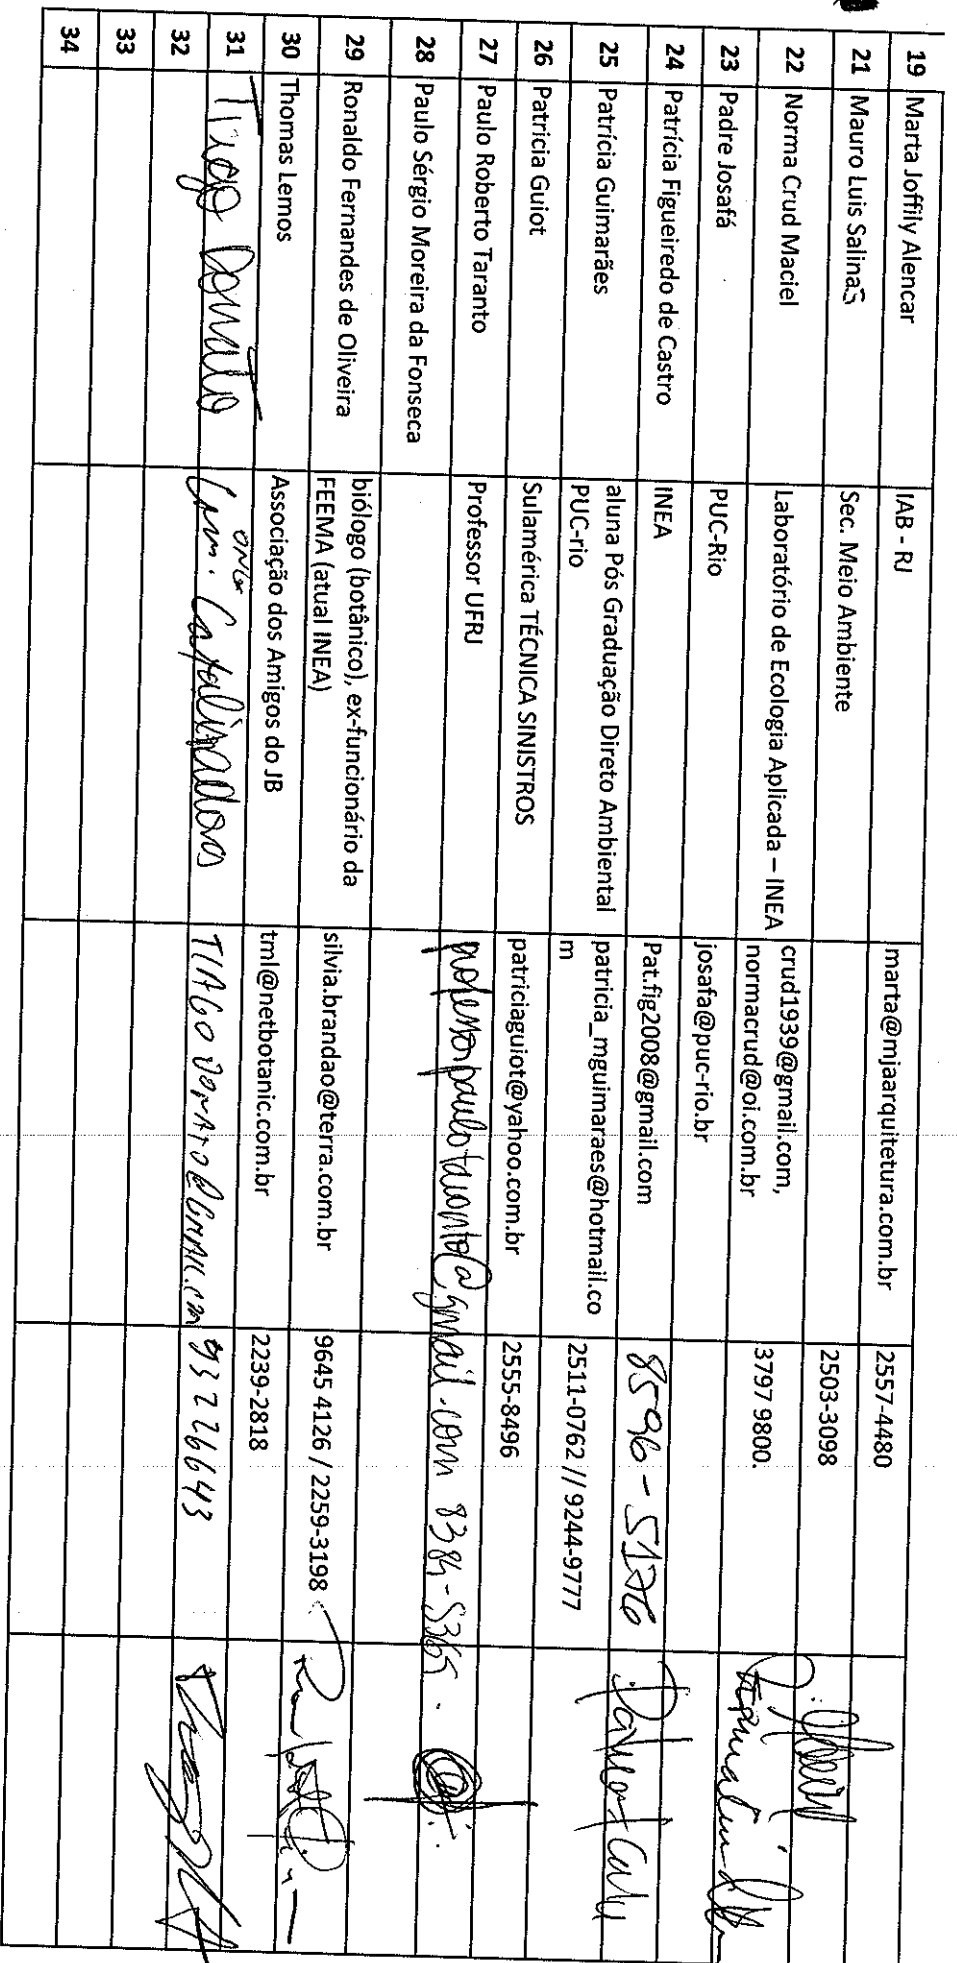 19 Marta Joffily Alencar IAB - RJ marta@mjaarquitetura.com.br 2557-4480
21 Mauro Luis Salinas Sec. Meio Ambiente 2503-3098
22 Norma Crud Maciel Laboratório de Ecologia Aplicada – INEA crud1939@gmail.com, 3797 9800.
normacrud@oi.com.br
23 Padre Josafá PUC-Rio josafa@puc-rio.br
24 Patrícia Figueiredo de Castro INEA Pat.fig2008@gmail.com 8596-5176
25 Patrícia Guimarães aluna Pós Graduação Direto Ambiental patricia_mguimaraes@hotmail.co 2511-0762 // 9244-9777
PUC-rio m
26 Patricia Guiot Sulamérica TÉCNICA SINISTROS patriciaguiot@yahoo.com.br 2555-8496
27 Paulo Roberto Taranto Professor UFRJ professorpaulotaranto@gmail.com 8384-5365.
28 Paulo Sérgio Moreira da Fonseca
29 Ronaldo Fernandes de Oliveira biólogo (botânico), ex-funcionário da silvia.brandao@terra.com.br 9645 4126 / 2259-3198
FEEMA (atual INEA)
30 Thomas Lemos Associação dos Amigos do JB tml@netbotanic.com.br 2239-2818
ONG
31 Tiago Donato Com. Catalisadora 93226643
32
33
34